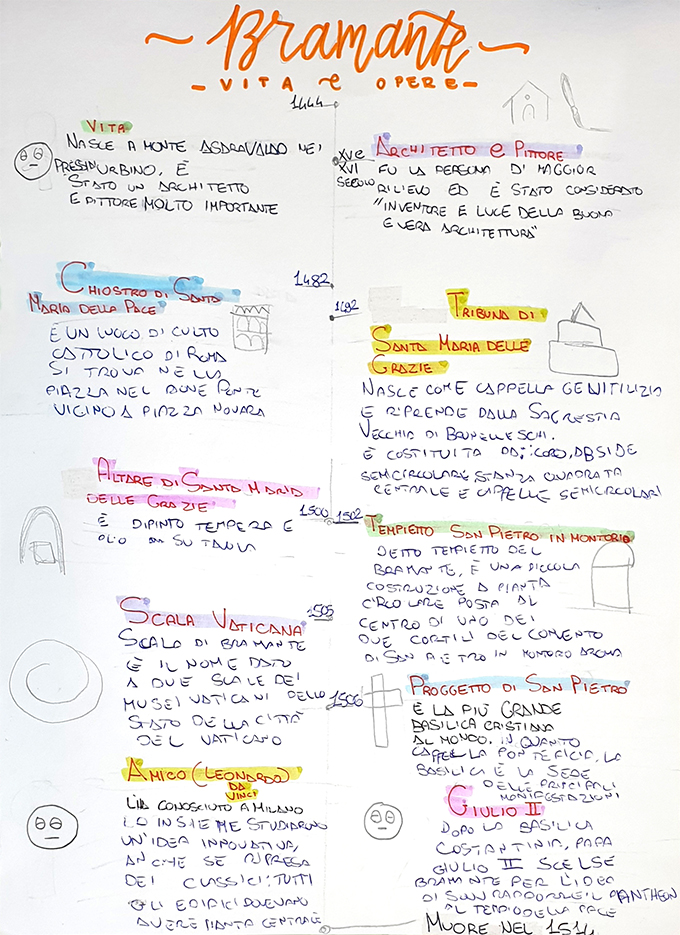 Bramante
VITA e OPERE
1444
VITA
NASCE A MONTE ASDRAVALDO NEI
PRESSI URBINO, È
STATO UN ARCHITETTO
E PITTORE MOLTO IMPORTANTE
XV e
XVI
SECOLO
ARCHITETTO e PITTORE
FU LA PERSONA DI MAGGIOR
RILIEVO ED È STATO CONSIDERATO
"INVENTORE E LUCE DELLA BUONA
E VERA ARCHITETTURA"
1482
CHIOSTRO DI SANTA
MARIA DELLA PACE
È UN LUOGO DI CULTO
CATTOLICO DI ROMA
SI TROVA NELLA
PIAZZA NEL RIONE PONTE
VICINO A PIAZZA NOVARA
1492
TRIBUNA DI
SANTA MARIA DELLE
GRAZIE
NASCE COME CAPPELLA GENITILIZIA
E RIPRENDE DALLA SAGRESTIA
VECCHIA DI BRUNELLESCHI.
È COSTITUITA DA: CORO, ABSIDE
SEMICIRCOLARE, STANZA QUADRATA
CENTRALE E CAPPELLE SEMICIRCOLARI
ALTARE DI SANTA MARIA
DELLE GRAZIE
È DIPINTO TEMPERA E
OLIO SU TAVOLA
1500
1502
TEMPIETTO SAN PIETRO IN MONTORIO
DETTO TEMPIETTO DEL
BRAMANTE, È UNA PICCOLA
COSTRUZIONE A PIANTA
CIRCOLARE POSTA AL
CENTRO DI UNO DEI
DUE CORTILI DEL CONVENTO
DI SAN PIETRO IN MONTORO A ROMA
1505
SCALA VATICANA
SCALA DI BRAMANTE
È IL NOME DATO
A DUE SCALE DEI
MUSEI VATICANI DELLO
STATO DELLA CITTÀ
DEL VATICANO
1506
PROGGETTO DI SAN PIETRO
È LA PIÙ GRANDE
BASILICA CRISTIANA
AL MONDO. IN QUANTO
CAPPELLA PONTEFICIA, LA
BASILICA È LA SEDE
DELLE PRINCIPALI
MANIFESTAZIONI
AMICO (LEONARDO)
DA
VINCI
L'HA CONOSCIUTO A MILANO
INSIEME STUDIARONO
UN'IDEA INNOVATIVA,
ANCHE SE RIPRESA
DEI CLASSICI: TUTTI
GLI EDIFICI DOVEVANO
AVERE PIANTA CENTRALE
GIULIO II
DOPO LA BASILICA
COSTANTINIA, PAPA
GIULIO II SCELSE
BRAMANTE PER L'IDEA
DI SOVRAPPORRE IL PANTHEON
AL TEMPIO DELLA PACE
MUORE NEL 1514